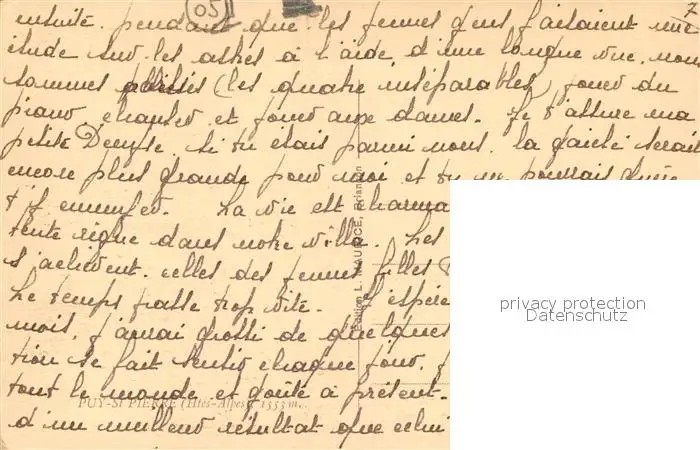 05
7
ensuite. pendant que les jeunes gens faisaient une
étude sur les astres à l'aide d'une longue vue, nous
sommes allées (les quatre inséparables) jouer du
piano, chanter et jouer aux dames. Je t'assure ma
petite Denyse, si tu étais parmi nous, la gaieté serait
encore plus grande pour moi et tu ne pourrais guère
t'y ennuyer. La vie est charma
tente règne dans notre villa. Les
s'achèvent. celles des jeunes filles
Le temps passe trop vite. J'espère
mois, j'aurai grossi de quelques
tion se fait sentir chaque jour.
tout le monde et goûte à présent.
d'un meilleur résultat que celui
PUY-St PIERRE (Htes-Alpes) 1553 m.
Edition L. MAURICE, Briançon
privacy protection
Datenschutz